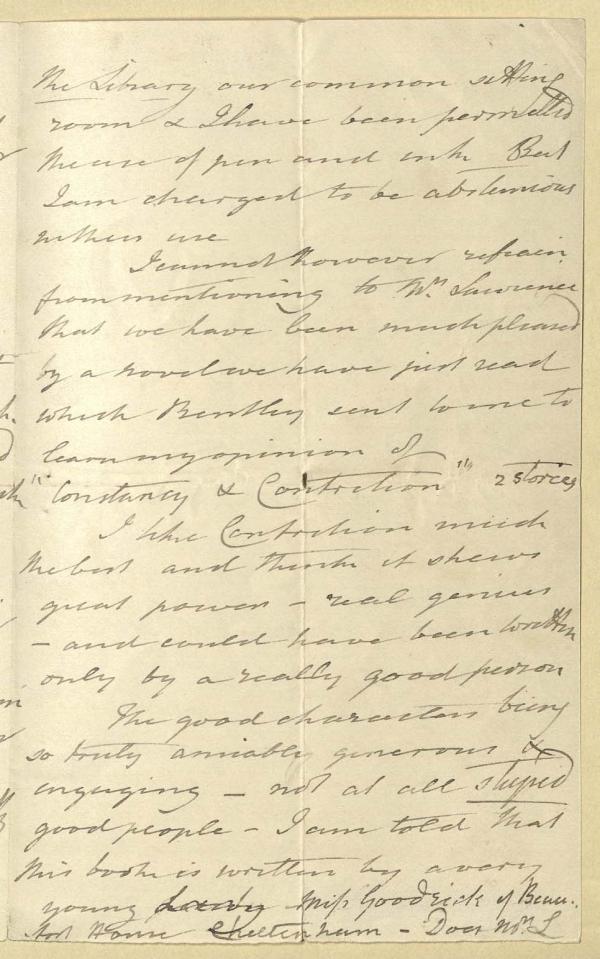 the Library our common sitting
room & I have been permitted
the use of pen and ink But
I am charged to be abstemious
in their use
I cannot however refrain
from mentioning to Mrs. Lawrence
that we have been much pleased
by a novel we have just read
which Bentley sent to me to
learn my opinion of
"Constancy & Contrition" 2 stories
I like Contrition much
the best and think it shews
great power – real genius
– and could have been written
only by a really good person
The good characters being
so truly amiable generous &
engaging – not at all stupid
good people – I am told that
this book is written by a very
young Miss Goodrick of Beau-
fort House Cheltenham – Does Mrs. L